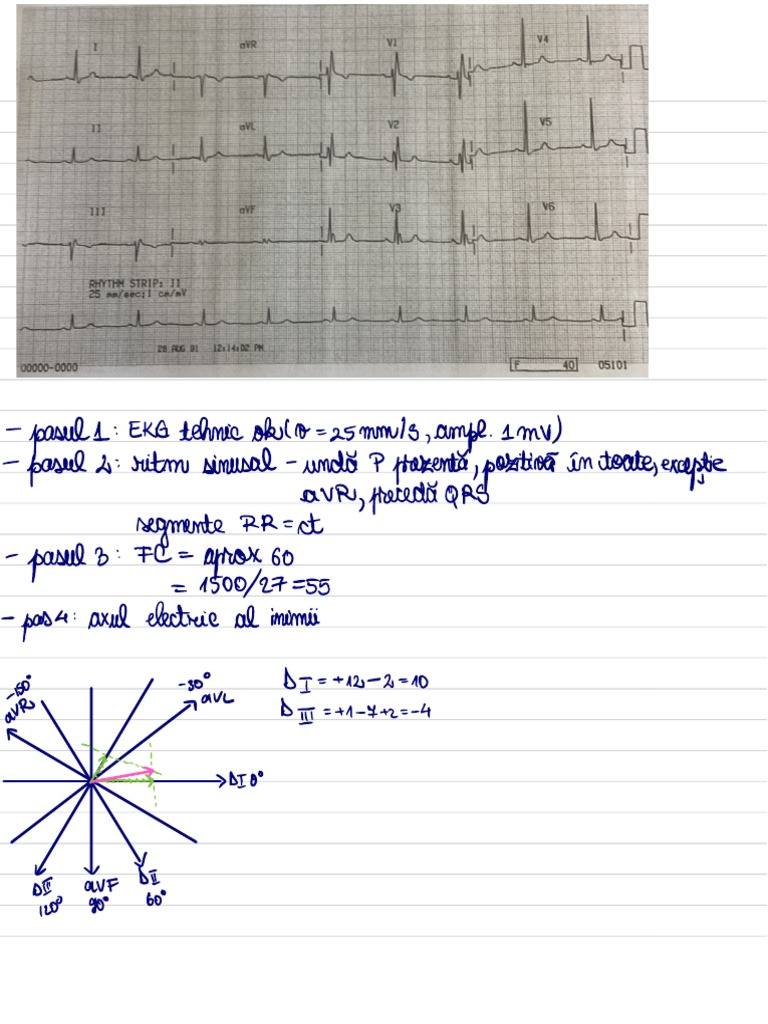 I aVR V1 V4
II aVL V2 V5
III aVF V3 V6
RHYTHM STRIP: II
25 mm/sec;1 cm/mV
28 AUG 91 12:14:02 PM
00000-0000 F 40 05101
- pasul 1: EKG tehnic ok (v = 25 mm/s, ampl. 1 mV)
- pasul 2: ritm sinusal - undă P prezentă, pozitivă în toate, excepție
aVR, precedă QRS
segmente RR = ct
- pasul 3: FC = aprox 60
= 1500/27 = 55
- pas 4: axul electric al inimii
-150° aVR
-30° aVL
D I = +12 - 2 = 10
D III = +1 - 7 + 2 = -4
D I 0°
D III 120°
aVF 90°
D II 60°